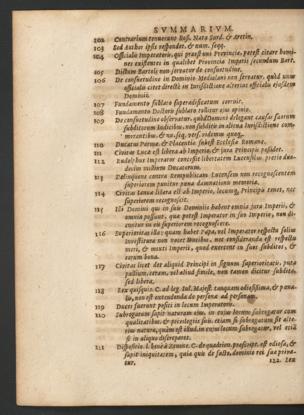 SVMMARIVM.
102 Contrarium tenuerunt Bosi. Nata Surd. & Aretin.
103 Sed Author ipsis respondet. & num. seqq.
104 Officialis Imperatoris, qui praeest uni Provinciae, potest citare homi-
nes existentes in qualibet Provincia Imperii secundum Bart.
105 Dictum Bartoli non servatur de consuetudine.
106 De consuetudine in Dominio Mediolani non servatur, quod unus
officialis citet directe in Iurisdictione alterius officialis eiusdem
Domini.
107 Fundamento sublato superaedificatum corruit.
108 Fundamento Doctoris sublato tollitur eius opinio.
109 De consuetudine observatur, quod Domini delegant causas suorum
subditorum Iudicibus, non subditis in aliena Iurisdictione com-
morantibus, & nu. seq. vers. videndum quoq.
110 Ducatus Parmae, & Placentiae subest Ecclesiae Romanae.
111 Civitas Lucae est libera ab Imperio, & iura Principis possidet.
112 Rudolphus Imperator concessit libertatem Lucensibus pretio duo-
decim millium Ducatorum.
113 Delinquens contra Rempublicam Lucensem non recognoscentem
superiorem punitur poena damnationis memoriae.
114 Civitas Ianuae libera est ab Imperio, locumq. Principis tenet, nec
superiorem recognoscit.
115 Hi Domini qui in suis Dominiis habent omnia iura Imperii, &
omnia possunt, quae potest Imperator in suo Imperio, non di-
cuntur in eis superiorem recognoscere.
116 Superioritas illa: quam habet Papa, vel Imperator respectu solius
Investiturae non nocet Ducibus, nec consideranda est respectu
meri, & mixti Imperii, quod exercent in suos subditos, &
eorum bona.
117 Civitas licet det aliquid Principi in signum superioritatis, puta
pallium, cereum, vel aliud simile, non tamen dicitur subdita,
sed libera.
118 Lex quisquis. C. ad leg. Iul. Maiest. tanquam odiosissima, & poena-
lis, non est extendenda de persona ad personam.
119 Duces fuerunt positi in locum Imperatoris.
120 Subrogatum sapit naturam eius, in cuius locum subrogatur cum
qualitatibus, & privilegiis suis, etiam si subrogatum sit alte-
rius naturae, quam est illud, in cuius locum subrogatur, vel etiã
si in aliquo discrepent.
121 Dispositio l. bene à Zenone. C. de quadrien. praescript. est odiosa, &
sapit iniquitatem, quia quis de facto, dominio rei suae priva-
tur.
122. Lex